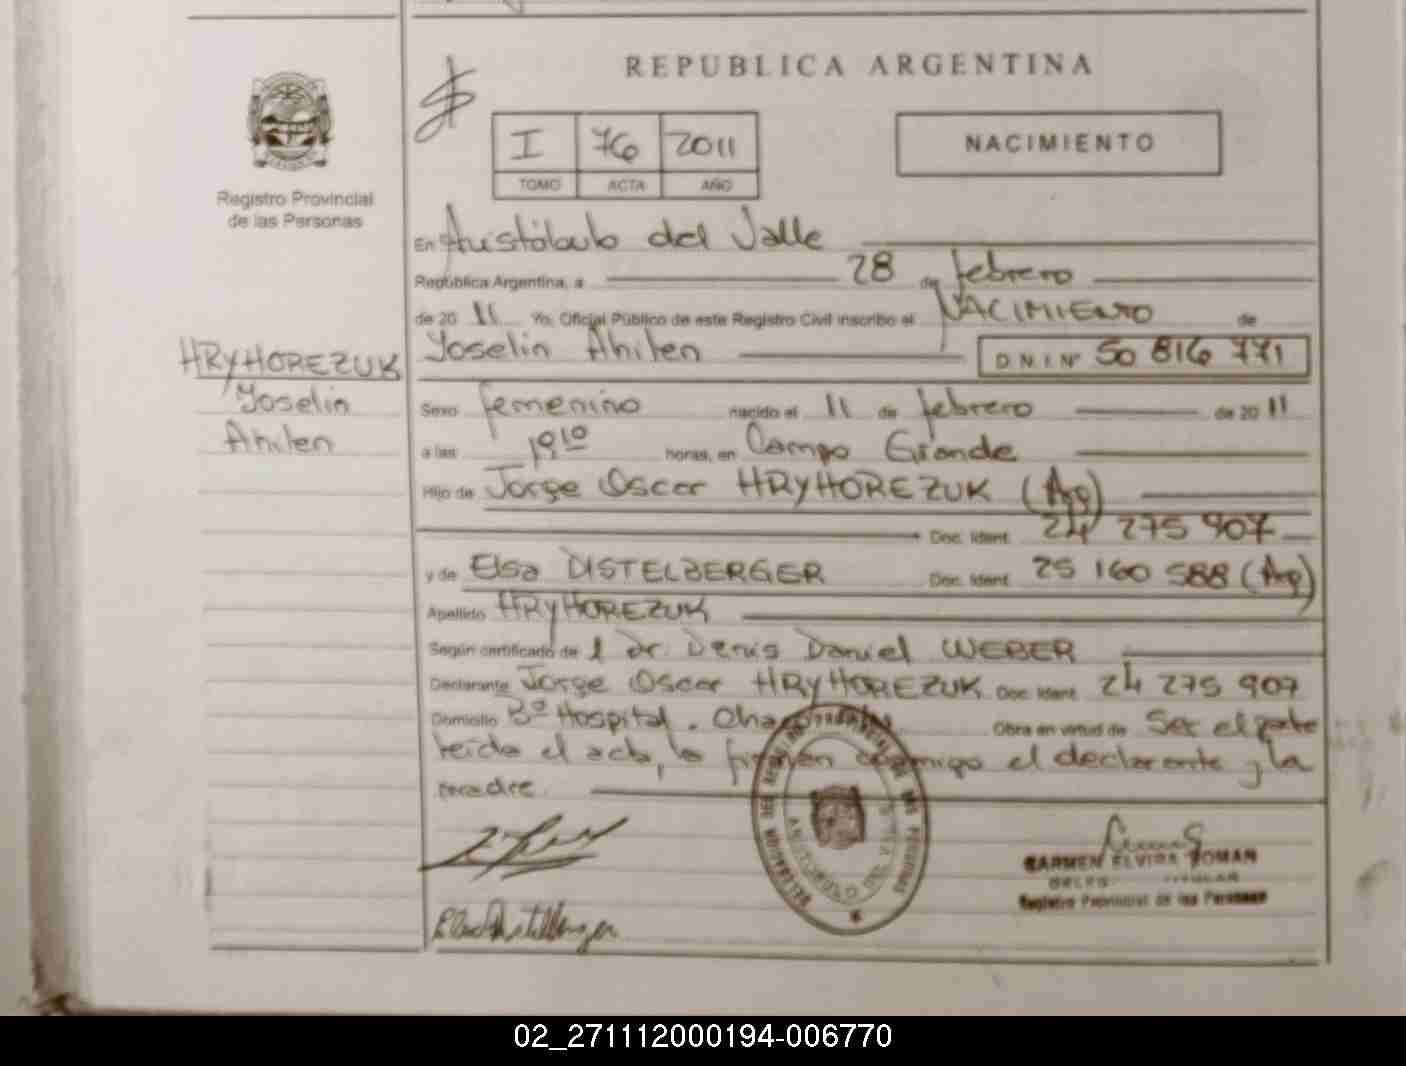 REPUBLICA ARGENTINA
I 76 2011
TOMO ACTA AÑO
NACIMIENTO
Registro Provincial
de las Personas
En Aristóbulo del Valle
República Argentina, a 28 de febrero
de 20 11 Yo, Oficial Público de este Registro Civil inscribo el NACIMIENTO de
Yoselin Ahilen D N I Nº 50 816 771
HRYHOREZUK
Yoselin
Ahilen
Sexo femenino nacido el 11 de febrero de 20 11
a las 19 10 horas, en Campo Grande
Hijo de Jorge Oscar HRYHOREZUK (Arg)
Doc. Ident. 24 275 907
y de Elsa DISTELBERGER Doc. Ident. 25 160 588 (Arg)
Apellido HRYHOREZUK
Según certificado de l Dr. Denis Daniel WEBER
Declarante Jorge Oscar HRYHOREZUK Doc. Ident. 24 275 907
Domicilio Bº Hospital. Obra en virtud de Ser el padre
leída el acta, la firman conmigo el declarante y la
madre
CARMEN ELVIRA ROMAN
TITULAR
Registro Provincial de las Personas
DELEGACION DEL REGISTRO PROVINCIAL DE LAS PERSONAS
ARISTOBULO DEL VALLE
Elsa Distelberger
02_271112000194-006770